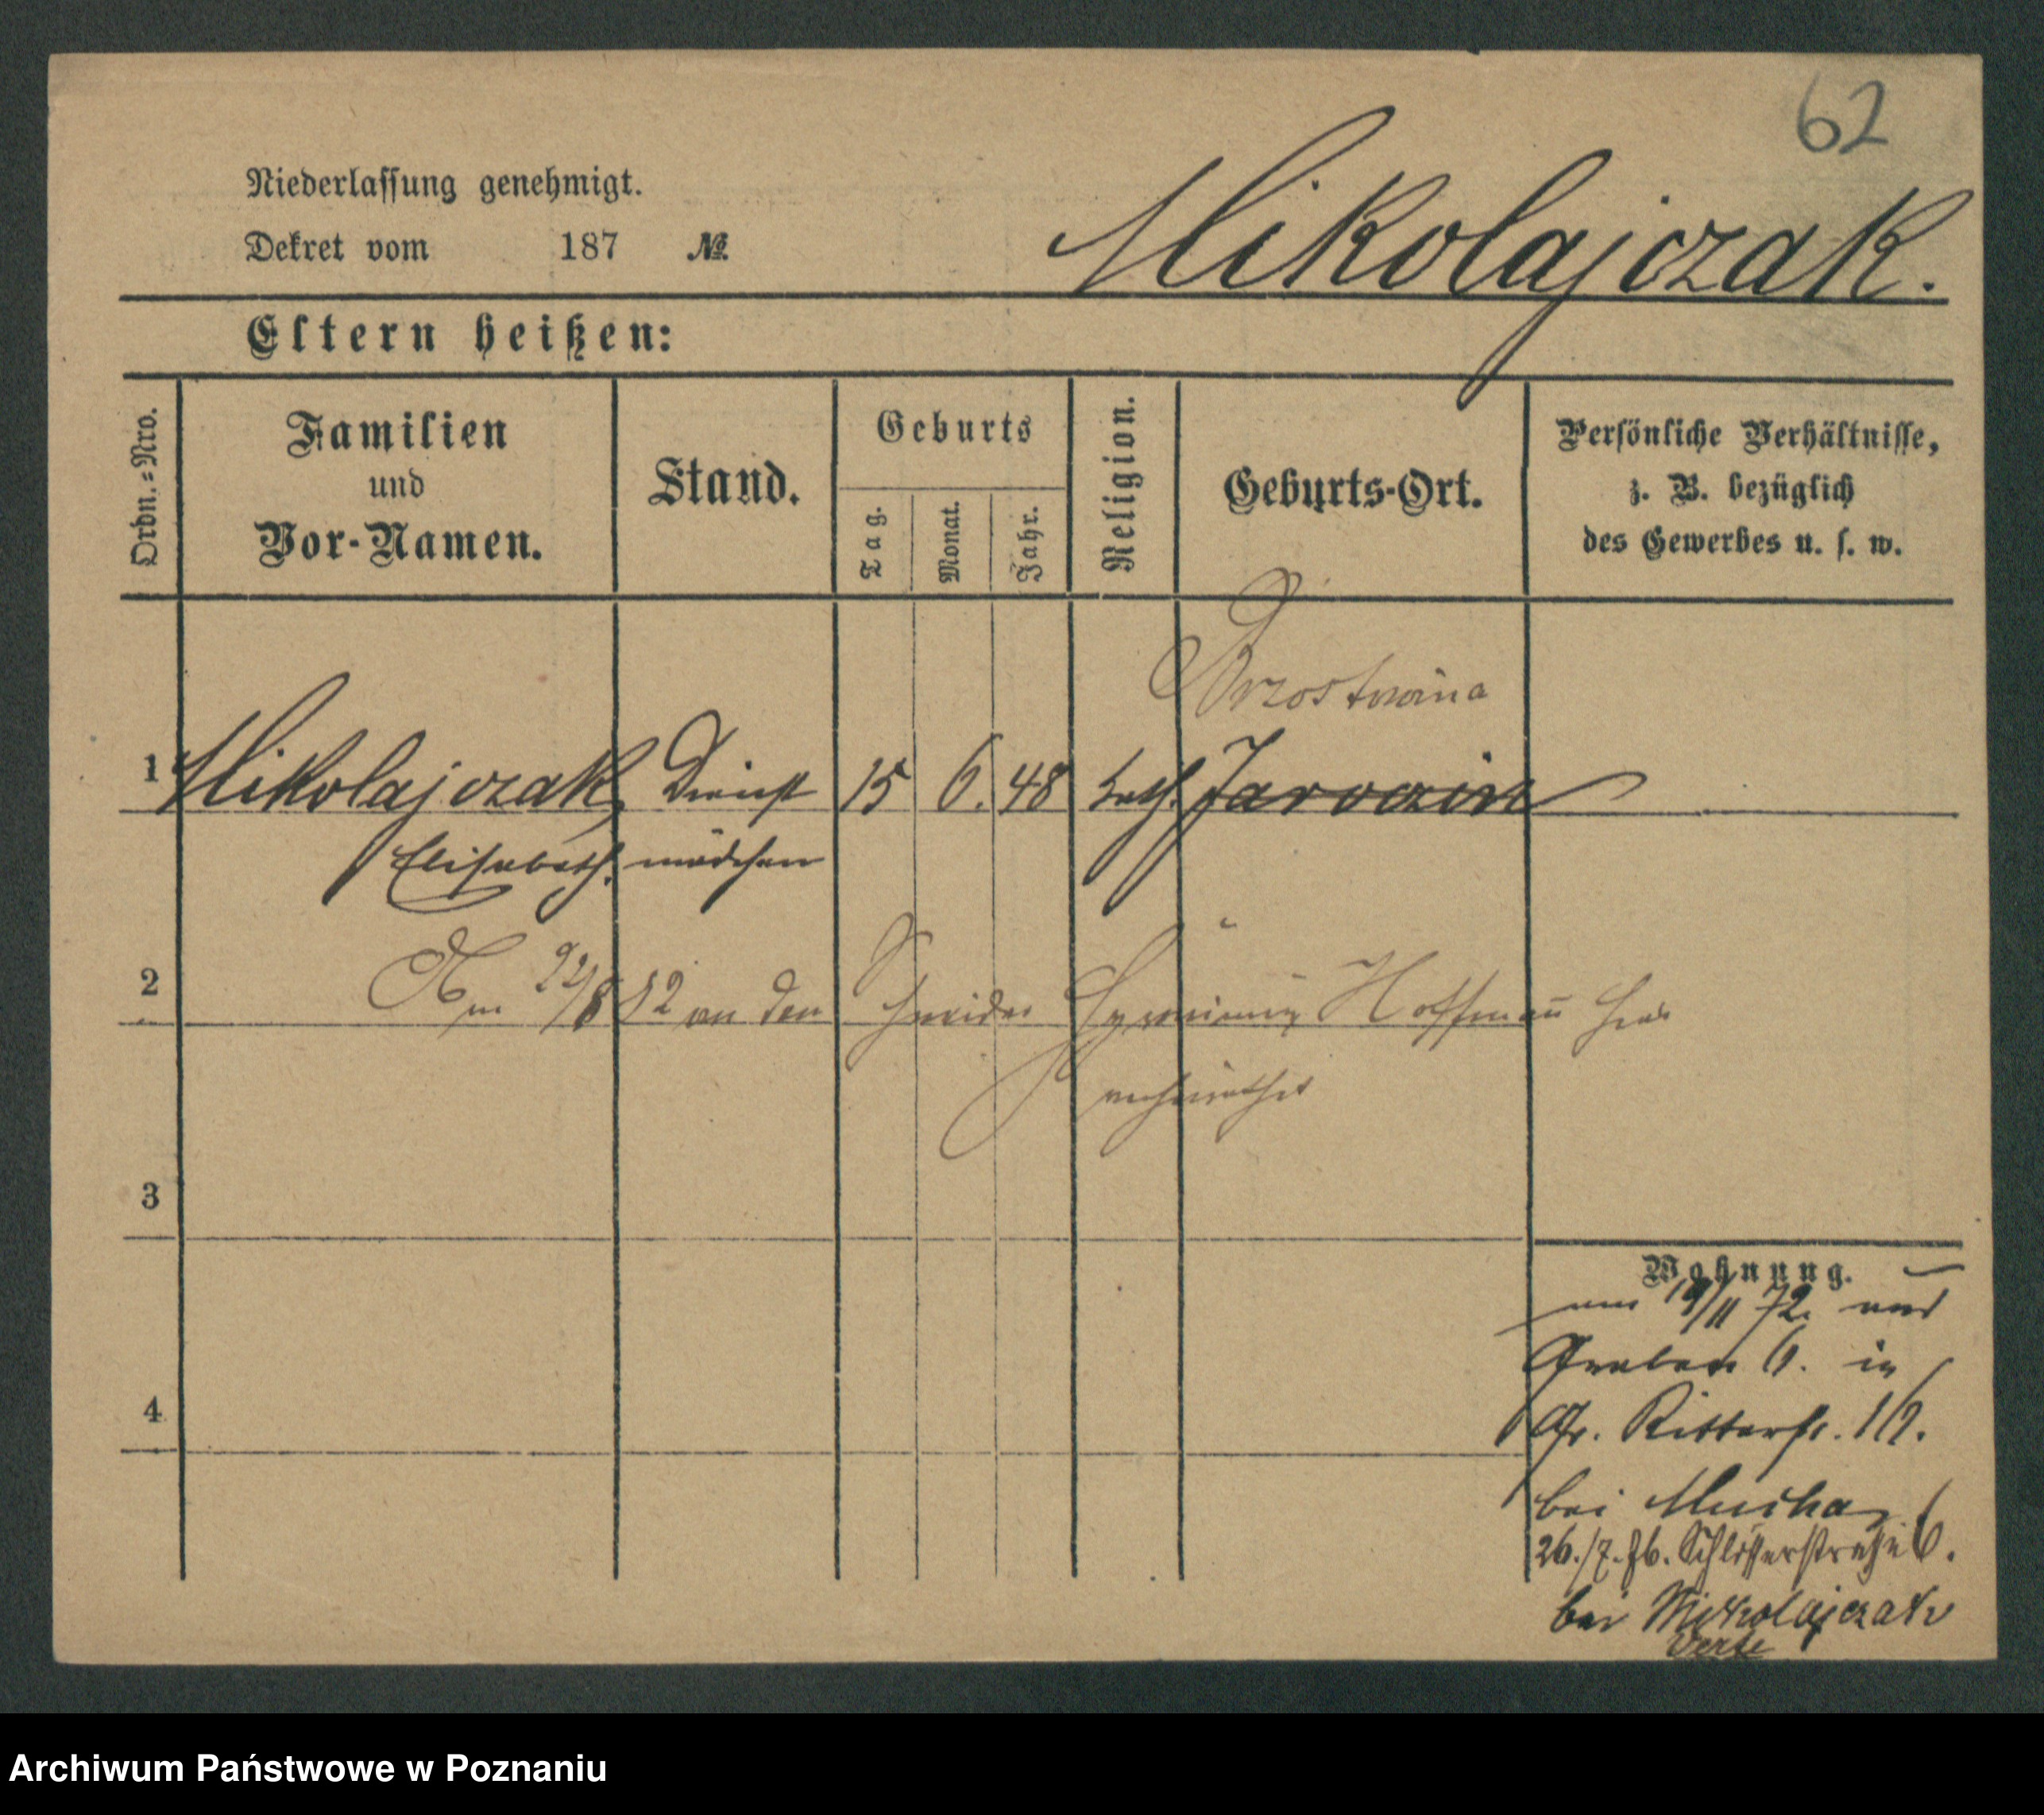 62
Niederlassung genehmigt.
Dekret vom 187 №
Mikolajczak.
Eltern heißen:
Ordn.=Nro.
Familien
und
Vor-Namen.
Stand.
Geburts
Tag.
Monat.
Jahr.
Religion.
Geburts-Ort.
Persönliche Verhältnisse,
z. B. bezüglich
des Gewerbes u. s. w.
Brzostwina
1 Mikolajczak, Dienst 15 6. 48 kath. Jaroczin
Elisabeth. mädchen
2 Am 22/8 82 an den Schneider Hyronimus Hoffmann hier
verheirathet
3
4
Wohnung.
am 19/11 72. von
Graben 6. in
Gr. Ritterstr. 12.
bei Mucha
26./7.76. Schlosserstraße 6.
bei Mikolajczak
verte
Archiwum Państwowe w Poznaniu